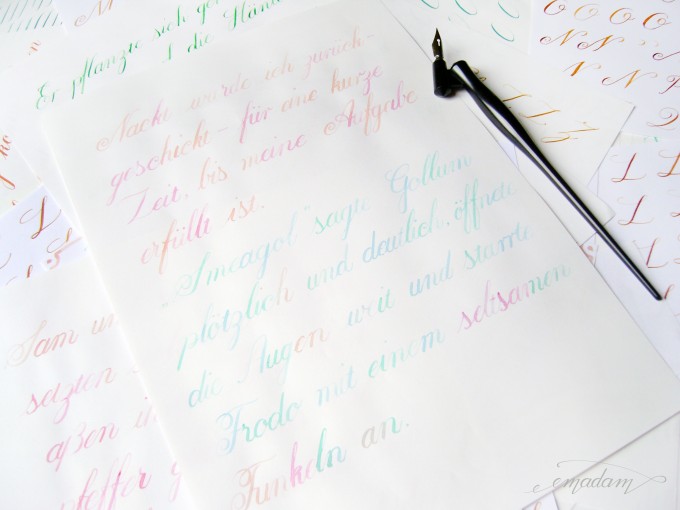 Er pflanzte sich
die Hän
Nackt wurde ich zurück-
geschickt - für eine kurze
Zeit, bis meine Aufgabe
erfüllt ist.
„Smeagol" sagte Gollum
plötzlich und deutlich, öffnete
die Augen weit und starrte
Frodo mit einem seltsamen
Funkeln an.
Sam un
setzten
aßen u
pfeffer g
O O O
N N
L
L L
emadam